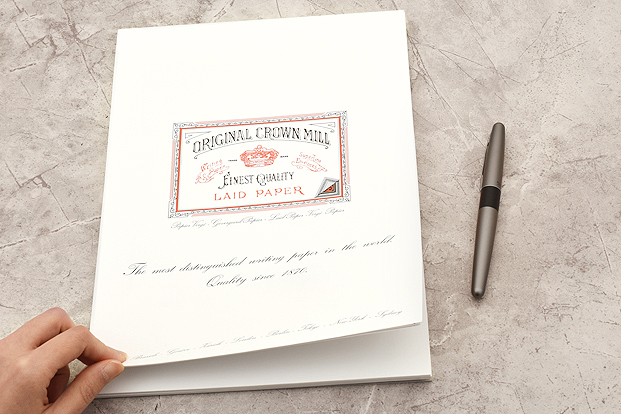 ORIGINAL CROWN MILL
FINEST QUALITY
LAID PAPER
Papier Vergé - Gevergeerd Papier - Laid Paper Vergé Papier
The most distinguished writing paper in the world.
Quality since 1870.
London - Tokyo - New York - Sydney